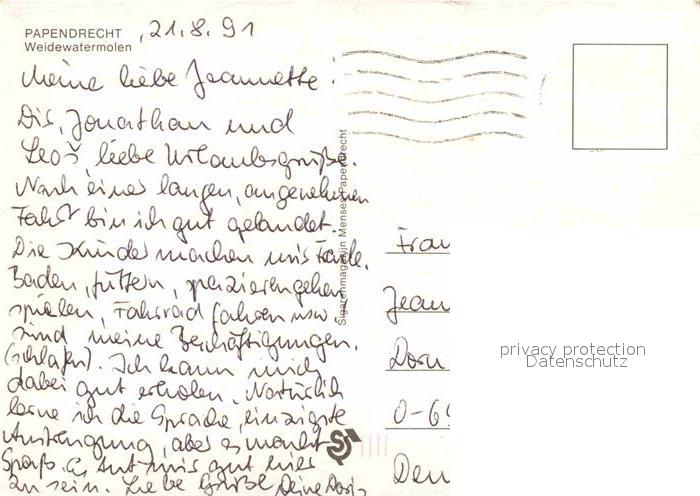 PAPENDRECHT
Weidewatermolen
21.8.91
Meine liebe Jeannette.
Dir, Jonathan und
Leoš liebe Urlaubsgrüße.
Nach einer langen, angenehmen
Fahrt bin ich gut gelandet.
Die Kinder machen mir Freude.
Baden, füttern, spazierengehen
spielen, Fahrrad fahren usw.
sind meine Beschäftigungen.
(schlafen). Ich kann mich
dabei gut erholen. Natürlich
lerne ich die Sprache, einzigste
Anstrengung, aber es macht
Spaß. Es tut mir gut hier
zu sein. Liebe Grüße Deine Doris
Sigarenmagazijn Menses Papendrecht
Frau
Jean
Dorn
0-69
Den
privacy protection
Datenschutz